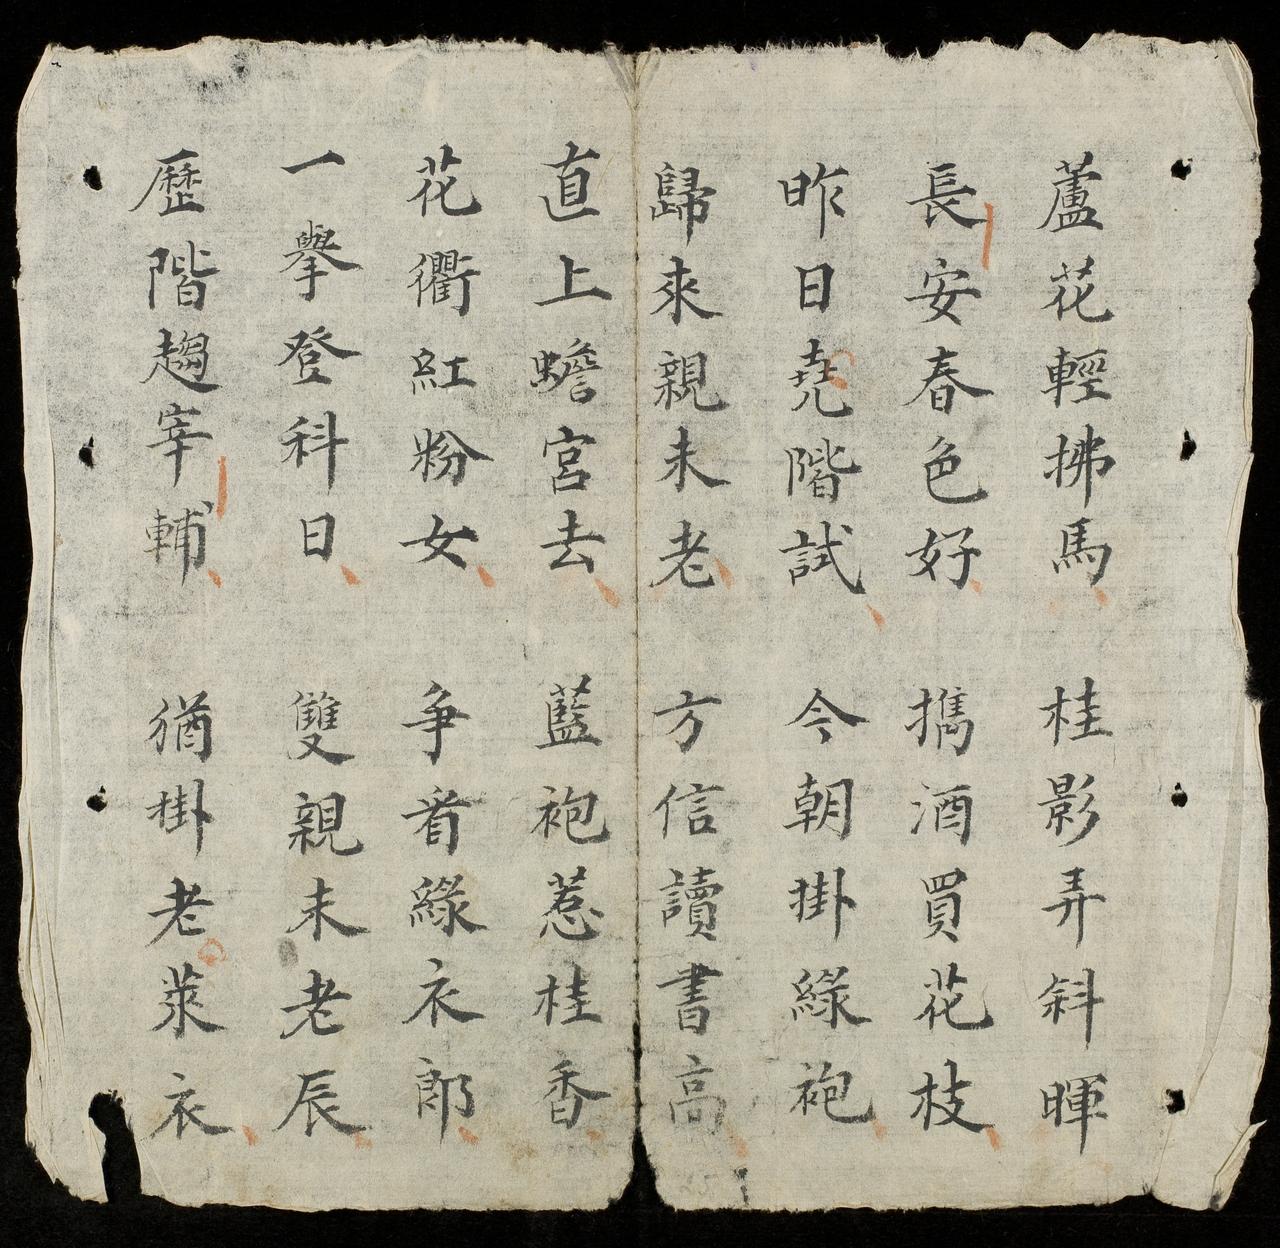 蘆花輕拂馬 桂影弄斜暉
長安春色好 攜酒買花枝
昨日堯階試 今朝掛綠袍
歸來親未老 方信讀書高
直上蟾宮去 藍袍惹桂香
花衢紅粉女 争看綠衣郎
一舉登科日 雙親未老辰
歷階趨宰輔 猶掛老萊衣